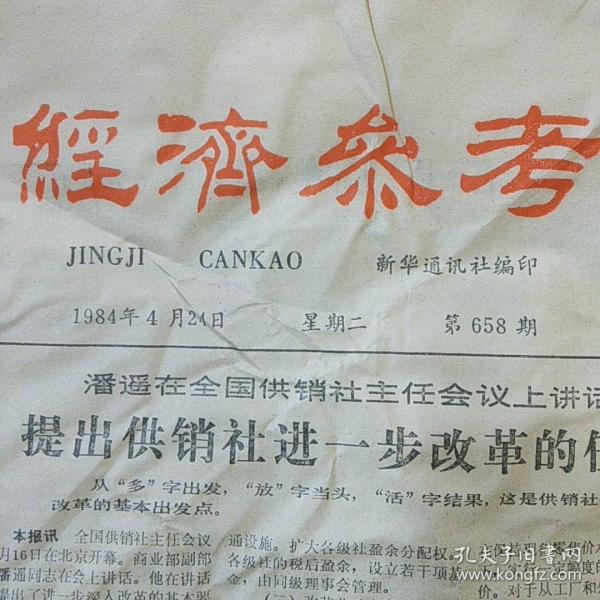 經濟參考
JINGJI CANKAO 新华通讯社编印
1984年4月24日 星期二 第658期
潘遥在全国供销社主任会议上讲话
提出供销社进一步改革的
从“多”字出发，“放”字当头，“活”字结果，这是供销社
改革的基本出发点。
本报讯 全国供销社主任会议
月16日在北京开幕。商业部副部
潘遥同志在会上讲话。他在讲话
提出了进一步深入改革的基本
通设施。扩大各级社盈余分配权。
各级社的税后盈余，设立若干项基
金，由同级理事会管理。
价。对于从工厂和
孔夫子旧书网
kongfz.com